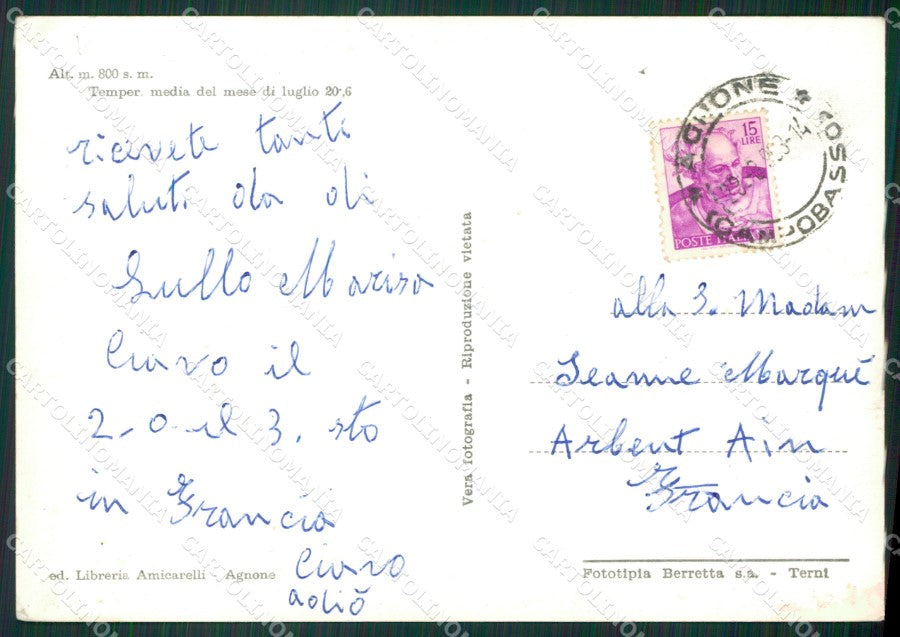 Alt. m. 800 s. m.
Temper. media del mese di luglio 20°,6
ricevete tanti
saluti da di
Lullo Marisa
Ciavo il
2-0-il 3. sto
in Francia
Ciavo
adiò
ed. Libreria Amicarelli - Agnone
Vera fotografia - Riproduzione vietata
15
LIRE
POSTE ITALIANE
AGNONE
(CAMPOBASSO)
alla S. Madam
Jeanne Marqué
Arbent Ain
Francia
Fototipia Berretta s.a. - Terni
CARTOLINOMANIA